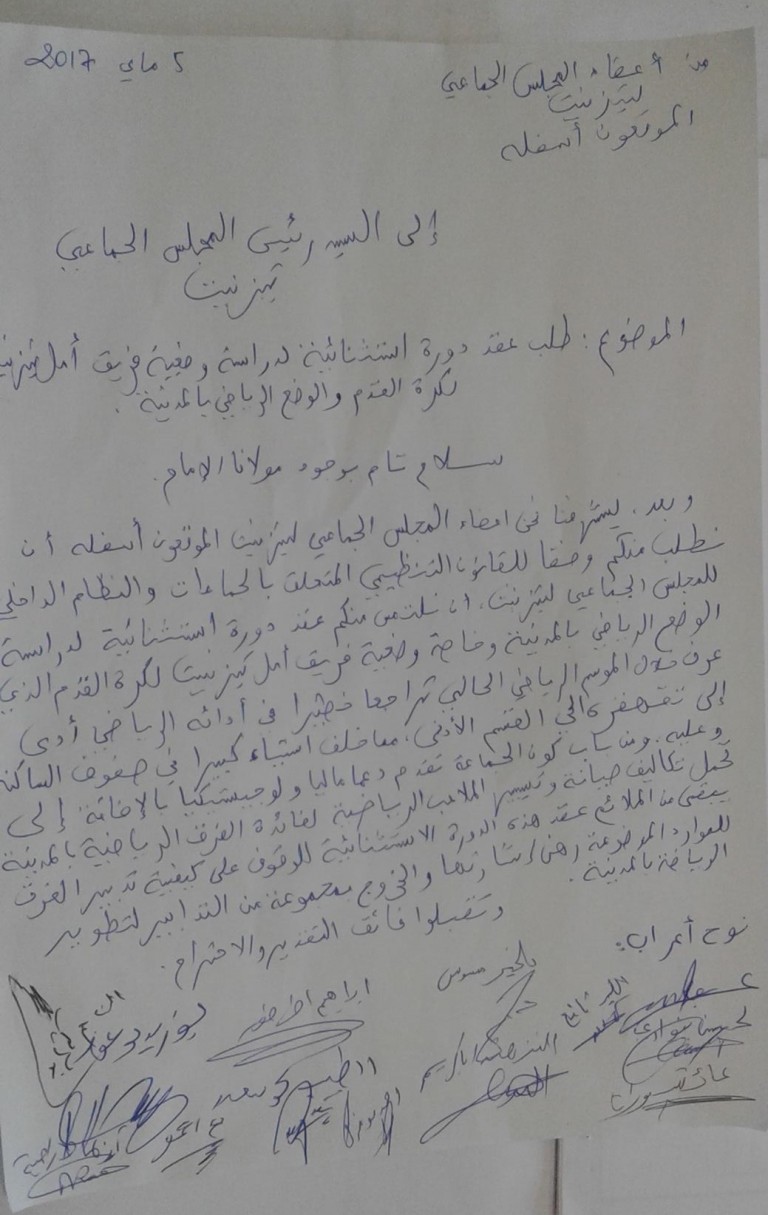 5 ماي 2017
من أعضاء المجلس الجماعي
لتيزنيت
الموقعون أسفله
إلى السيد رئيس المجلس الجماعي
تيزنيت
الموضوع : طلب عقد دورة استثنائية لدراسة وضعية فريق أمل تيزنيت
لكرة القدم والوضع الرياضي بالمدينة .
سلام تام بوجود مولانا الإمام .
وبعد ، يشرفنا نحن اعضاء المجلس الجماعي لتيزنيت الموقعون أسفله أن
نطلب منكم وفقا للقانون التنظيمي المتعلق بالجماعات والنظام الداخلي
للمجلس الجماعي لتيزنيت ، ان نلتمس منكم عقد دورة استثنائية لدراسة
الوضع الرياضي بالمدينة وخاصة وضعية فريق أمل تيزنيت لكرة القدم الذي
عرف خلال الموسم الرياضي الحالي تراجعا خطيرا في أدائه الرياضي أدى
إلى تقهقره إلى القسم الأدنى ، مما خلف استياء كبيرا في صفوف الساكنة
وعليه . ومن باب كون الجماعة تقدم دعما ماليا ولوجيستيكيا بالإضافة إلى
تحمل تكاليف صيانة وتسيير الملاعب الرياضية لفائدة الفرق الرياضية بالمدينة
من الملائم عقد هذه الدورة الاستثنائية للوقوف على كيفية تدبير الفرق
للموارد الموضوعة رهن إشارتها والخروج بمجموعة من التدابير لتطوير
الرياضة بالمدينة .
وتقبلوا فائق التقدير والاحترام .
نوح أعراب
بلخير مسوس
ابراهيم
لحسن بنواري
كريم
الطيب
عائشة